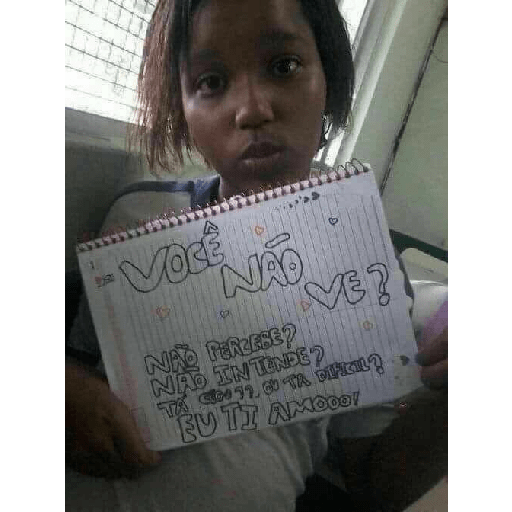 VOCÊ
NÃO
VE?
NÃO PERCEBE?
NÃO INTENDE?
TÁ CEGU??, OU TA DIFICIL?
EU TI AMOOO!